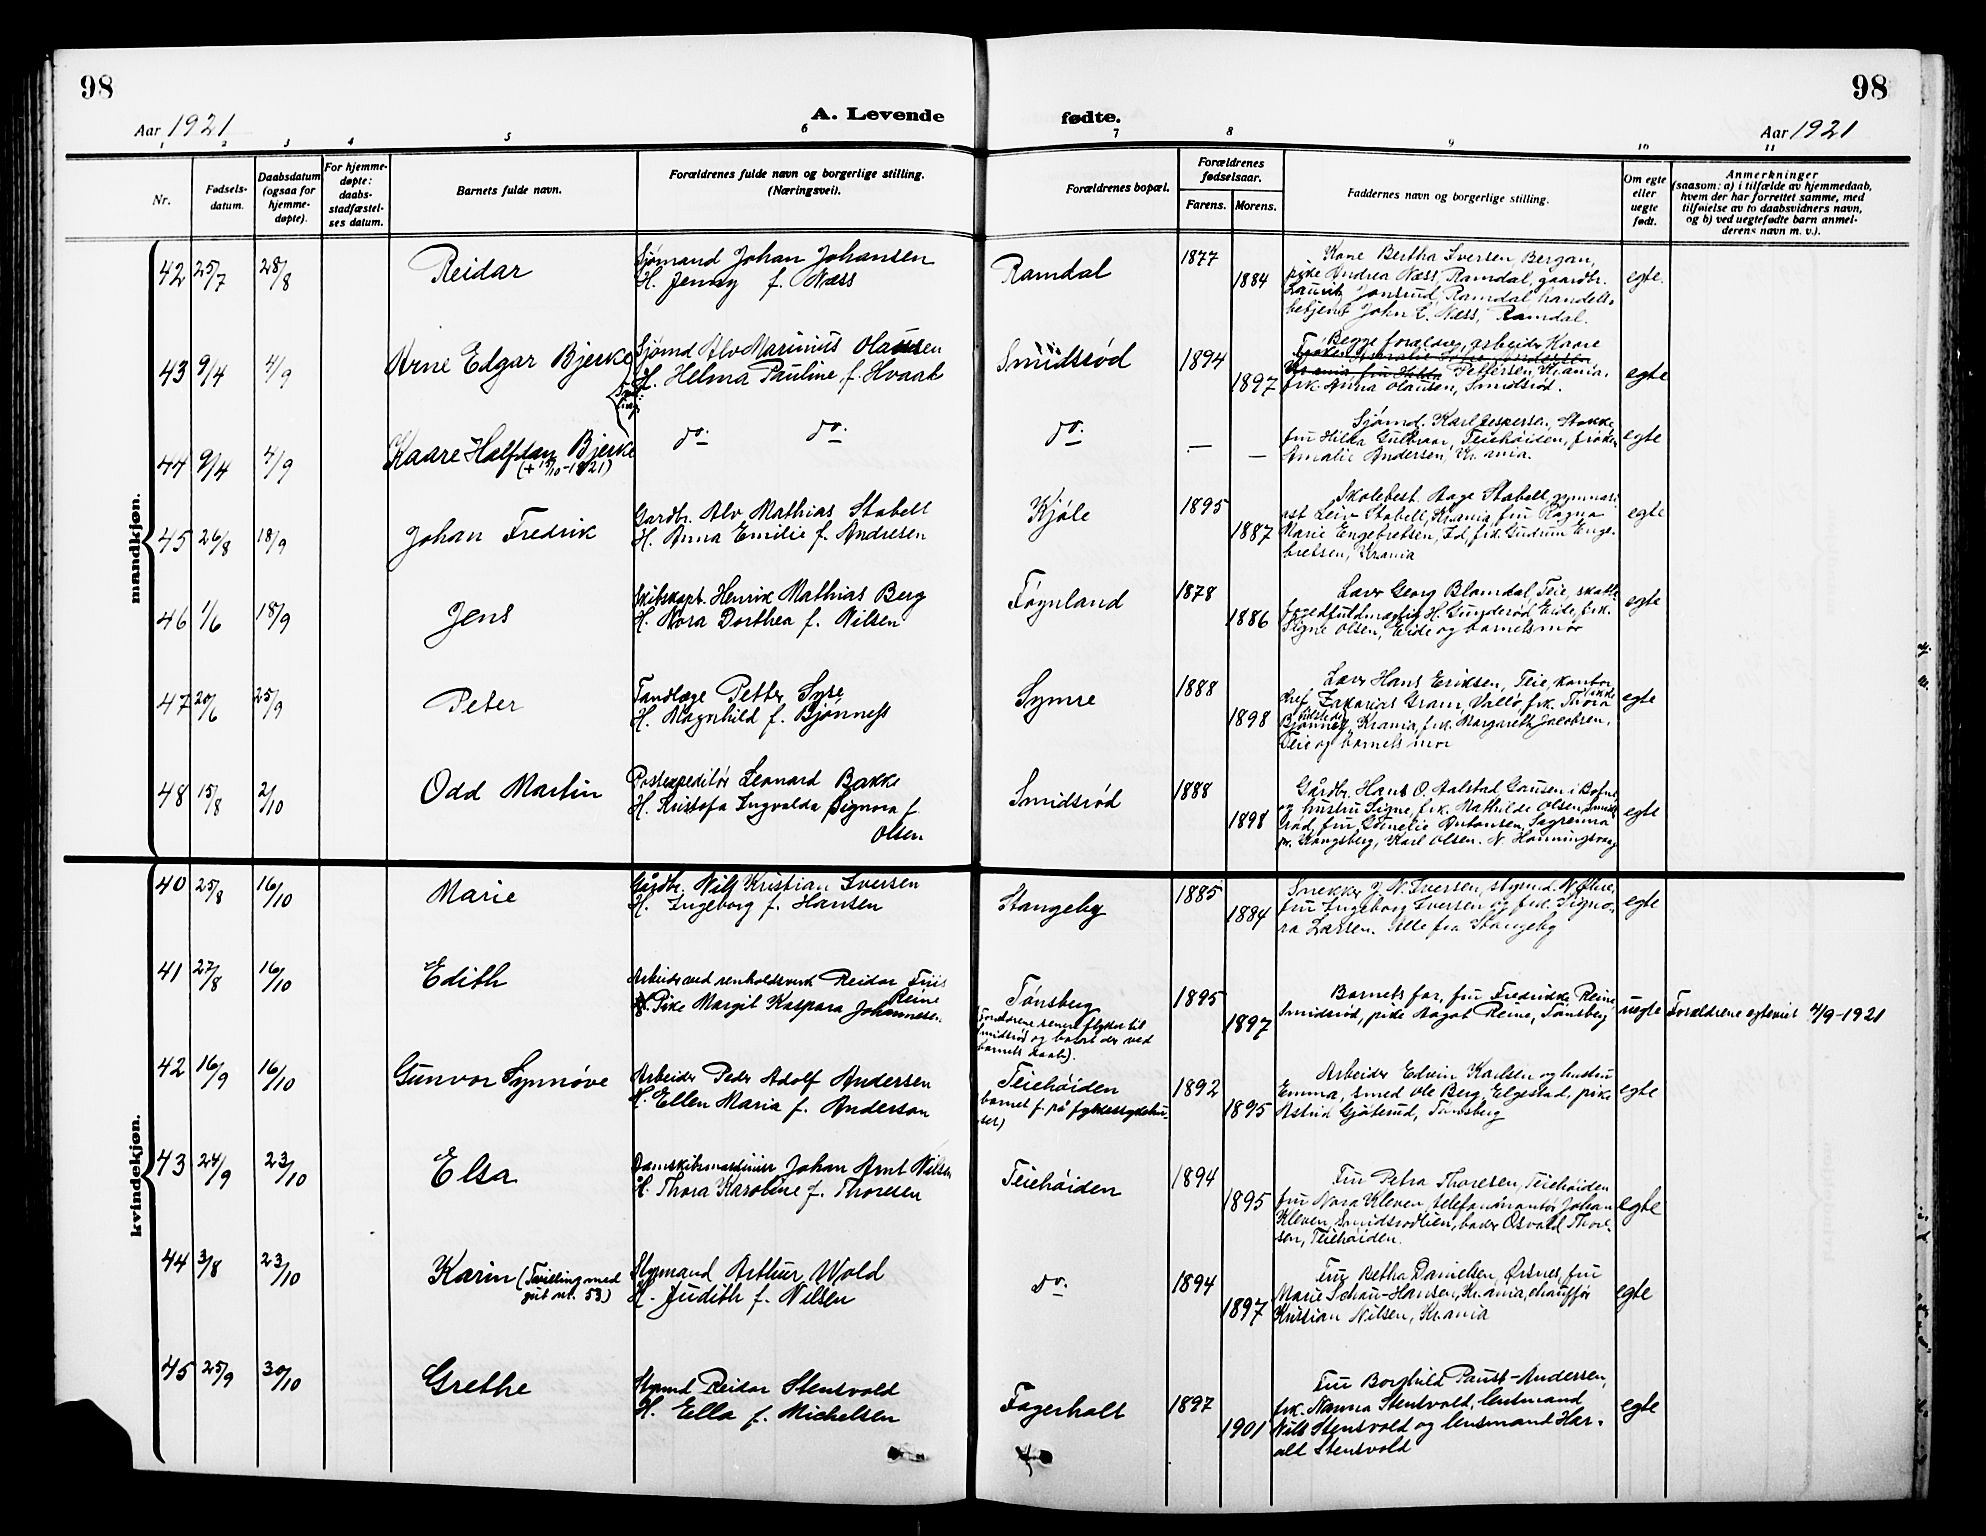 98
98
Aar 1921
A. Levende
fødte.
Aar 1921
1 2 3 4 5 6 7 8 9 10 11
Nr.
Fødsels-
datum.
Daabsdatum
(ogsaa for
hjemme-
døpte).
For hjemme-
døpte:
daabs-
stadfæstel-
ses datum.
Barnets fulde navn.
Forældrenes fulde navn og borgerlige stilling.
(Næringsvei).
Forældrenes bopæl.
Forældrenes
fødselsaar.
Farens. Morens.
Faddernes navn og borgerlige stilling.
Om egte
eller
uegte
født.
Anmerkninger
(saasom: a) i tilfælde av hjemmedaab,
hvem der har forrettet samme, med
tilføielse av to daabsvidners navn,
og b) ved uegtefødte barn anmel-
derens navn m. v.).
mandkjøn.
42 25/7 28/8
Reidar
Sjømand Johan Johansen
H. Jenny f. Næss
Ramdal
1877
1884
Kone Bertha Iversen Bergan,
pike Andrea Næss, Ramdal, gaardbr.
Laurits Jonsrud, Ramdal, handels-
betjent John L. Næss, Ramdal.
egte.
43 9/4 4/9
Arne Edgar Bjerke
Sjømd Alv Marinius Olaussen
H. Helma Pauline f. Hvaak
Smidsrød
1894
1897
Begge forældre, arbeider Kaare
Pettersen, Kr.ania,
frk. Anna Olausen, Smidsrød.
egte
44 9/4 4/9
Kaare Halfdan Bjerke
do. do.
do.
— —
Sjømd. Karl Jespersen, Stokke,
fru Hilda Gulbraar, Teiehøiden, frøken
Amalie Andersen, Kr.ania.
egte
45 26/8 18/9
Johan Fredrik
Gardbr. Alv Mathias Stabell
H. Anna Emilie f. Andresen
Kjøle
1895
1887
Skolebest. Aage Stabell, gymnasi-
ast Leiv Stabell, Kr.ania, fru Ragna
Marie Engebretsen, Id, frk. Gudrun Enge-
bretsen, Kr.ania
egte
46 1/6 18/9
Jens
Skibskapt. Henrik Mathias Berg
H. Nora Dorthea f. Nilsen
Føynland
1878
1886
Lærer Georg Blomdal, Teie, skatte-
fogedfuldmægtig H. Gunderød, Eide, frk.
Signe Olsen, Eide og barnets mor
egte
47 20/6 25/9
Peter
Tandlæge Petter Syse
H. Magnhild f. Bjønness
Symre
1888
1898
Lærer Hans Eriksen, Teie, kontor-
chef Zakarias Gram, Vallø, frk. Thora
Bjønnes, Kr.ania, frk. Margareth Jacobsen,
Teie og barnets mor
egte
48 15/8 2/10
Odd Martin
Postexpeditør Leonard Bakke
H. Kristofa Ingvalda Signora f.
Olsen
Smidsrød
1888
1898
Gårdbr. Hans O. Aalstad, Gausen i Bofne
og hustru Signe, frk. Mathilde Olsen, Smids-
rød, fru Cornelie Antonsen, Sagrenna
pr. Kongsberg, Karl Olsen. N. Honningsvaag
egte
kvindekjøn.
40 25/8 16/10
Marie
Gårdbr. Nils Kristian Iversen
H. Ingeborg f. Hansen
Stangeby
1885
1884
Snekker J. N. Iversen, styrmd. N. Øhre,
fru Ingeborg Iversen og frk. Signo-
ra Larsen. Alle fra Stangeby
egte
41 27/8 16/10
Edith
Arbeider ved renholdsverk Reidar Friis
Reine
Pike Margit Kaspara Johannesen
Tønsberg
(Forældrene senere flyttet til
Smidsrød og bodde der ved
barnets daab).
1895
1897
Barnets far, fru Fredrikke Reine,
Smidsrød, pike Aagot Reine, Tønsberg
uegte
Forældrene egteviet 4/9-1921
42 16/9 16/10
Gunvor Synnøve
Arbeider Peder Adolf Andersen
H. Ellen Maria f. Anderson
Teiehøiden
(barnet f. på fylkessykehu-
set)
1892
1895
Arbeider Edvin Karlsen og hustru
Emma, smed Ole Berg, Elgestad, pike
Astrid Gjøterud, Tønsberg
egte
43 24/9 23/10
Elsa
Damskibsmaskinist Johan Arnt Nilsen
H. Thora Karoline f. Thoresen
Teiehøiden
1894
1895
Fru Petra Thoresen, Teiehøiden
fru Nora Kleven, telefonmontør Johan
Kleven, Smidsrødlien, bader Osvald Thore-
sen, Teiehøiden.
egte
44 3/8 23/10
Karin (Tvilling med
gut nr. 53)
Styrmand Arthur Wold
H. Judith f. Nilsen
do.
1894
1897
Fru Betha Danielsen, Ørsnes, fru
Marie Schau-Hansen, Kr.ania, chauffør
Kristian Nilsen, Kr.ania
egte
45 25/9 30/10
Grethe
Styrmd Reidar Stensvold
H. Ella f. Michelsen
Fagerholt
1897
1901
Fru Borghild Paust-Andersen,
frk. Nanna Stensvold, lensmand
Nils Stensvold og lensmand Har-
ald Stensvold
egte